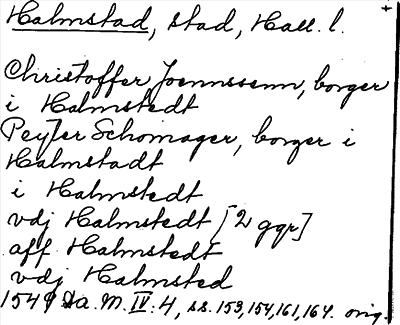 Halmstad, stad, Hall. l.
Christoffer Joennssenn, borger
i Halmstedt
Peyter Schomager, borger i
Halmstadt
i Halmstedt
vdj Halmstedt [2 ggr]
aff Halmstedt
vdj Halmsted
1549 Da. M. IV: 4, ss. 153, 154, 161, 164. orig.